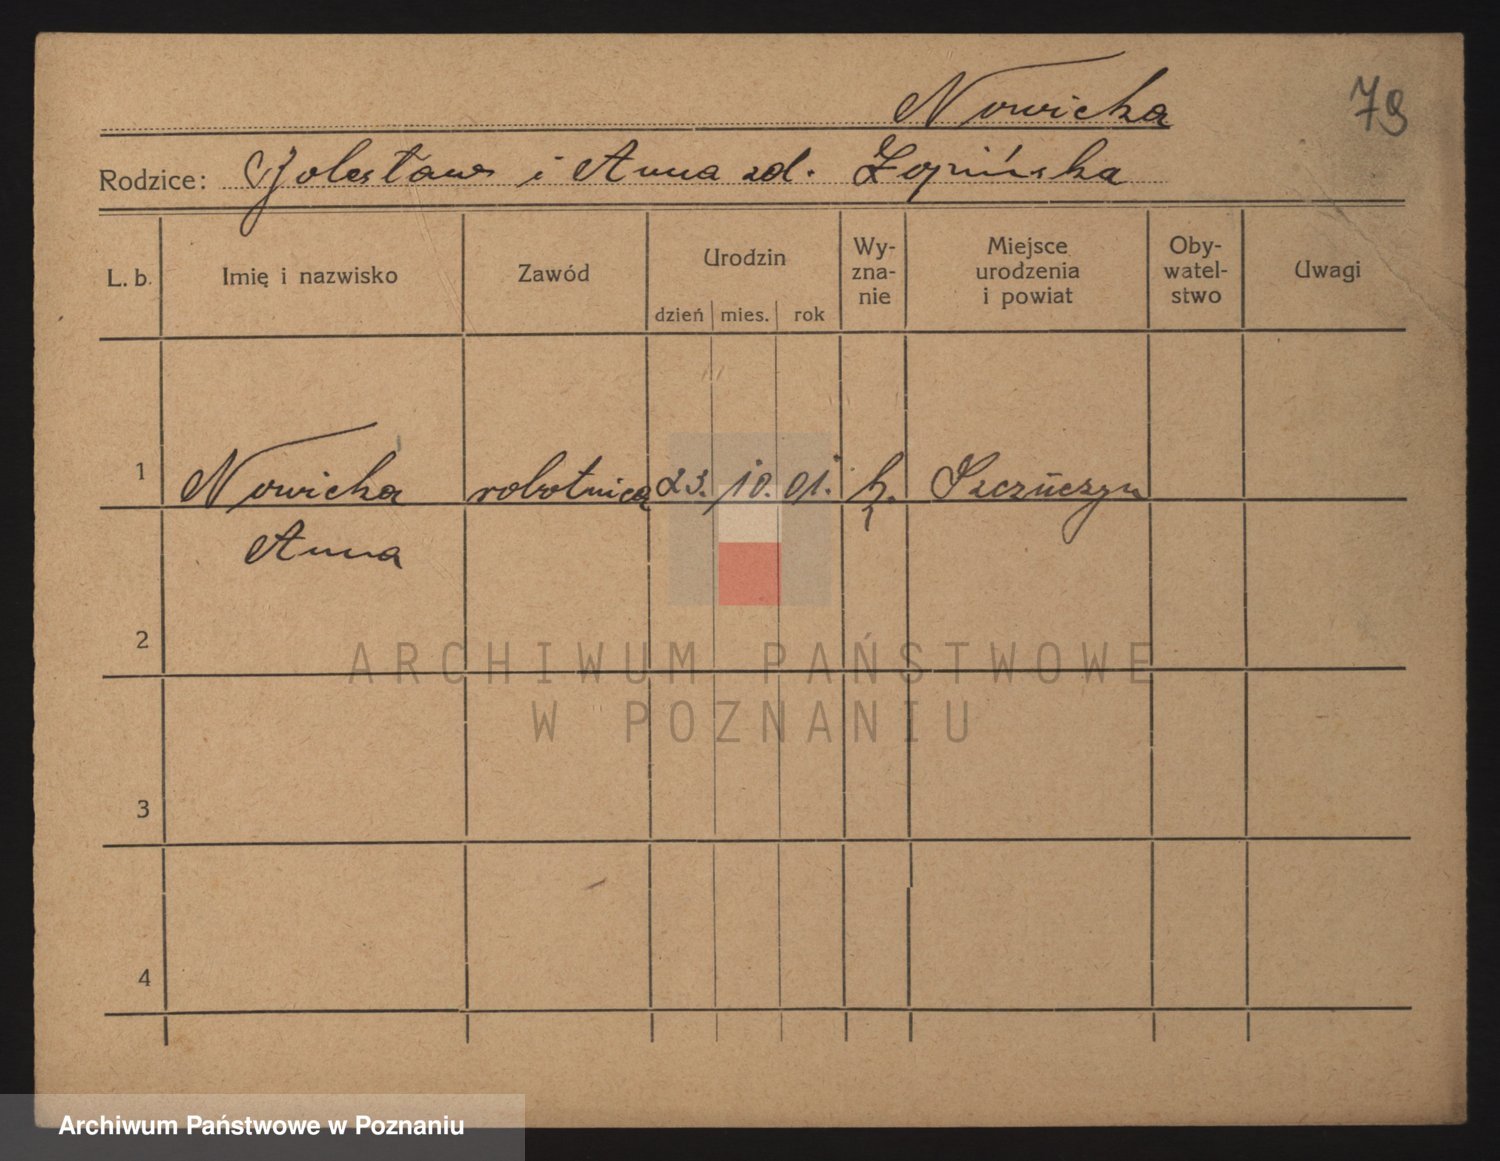 Nowicka
79
Rodzice: Bolesław i Anna zd.
L. b. Imię i nazwisko Zawód Urodzin Wy-zna-nie Miejsce urodzenia i powiat Oby-watel-stwo Uwagi
dzień mies. rok
1 Nowicka robotnica 23. 10. 01. k.
Anna
2
3
4
ARCHIWUM PAŃSTWOWE
W POZNANIU
Archiwum Państwowe w Poznaniu